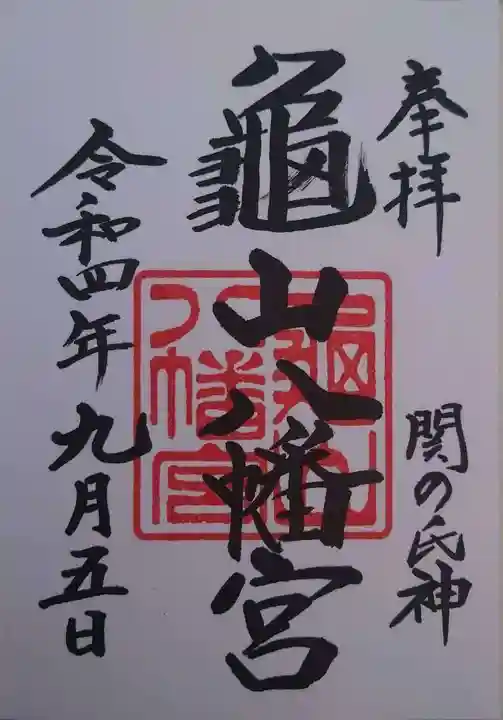 奉拝
関の氏神
龜山八幡宮
龜山八幡宮
令和四年九月五日